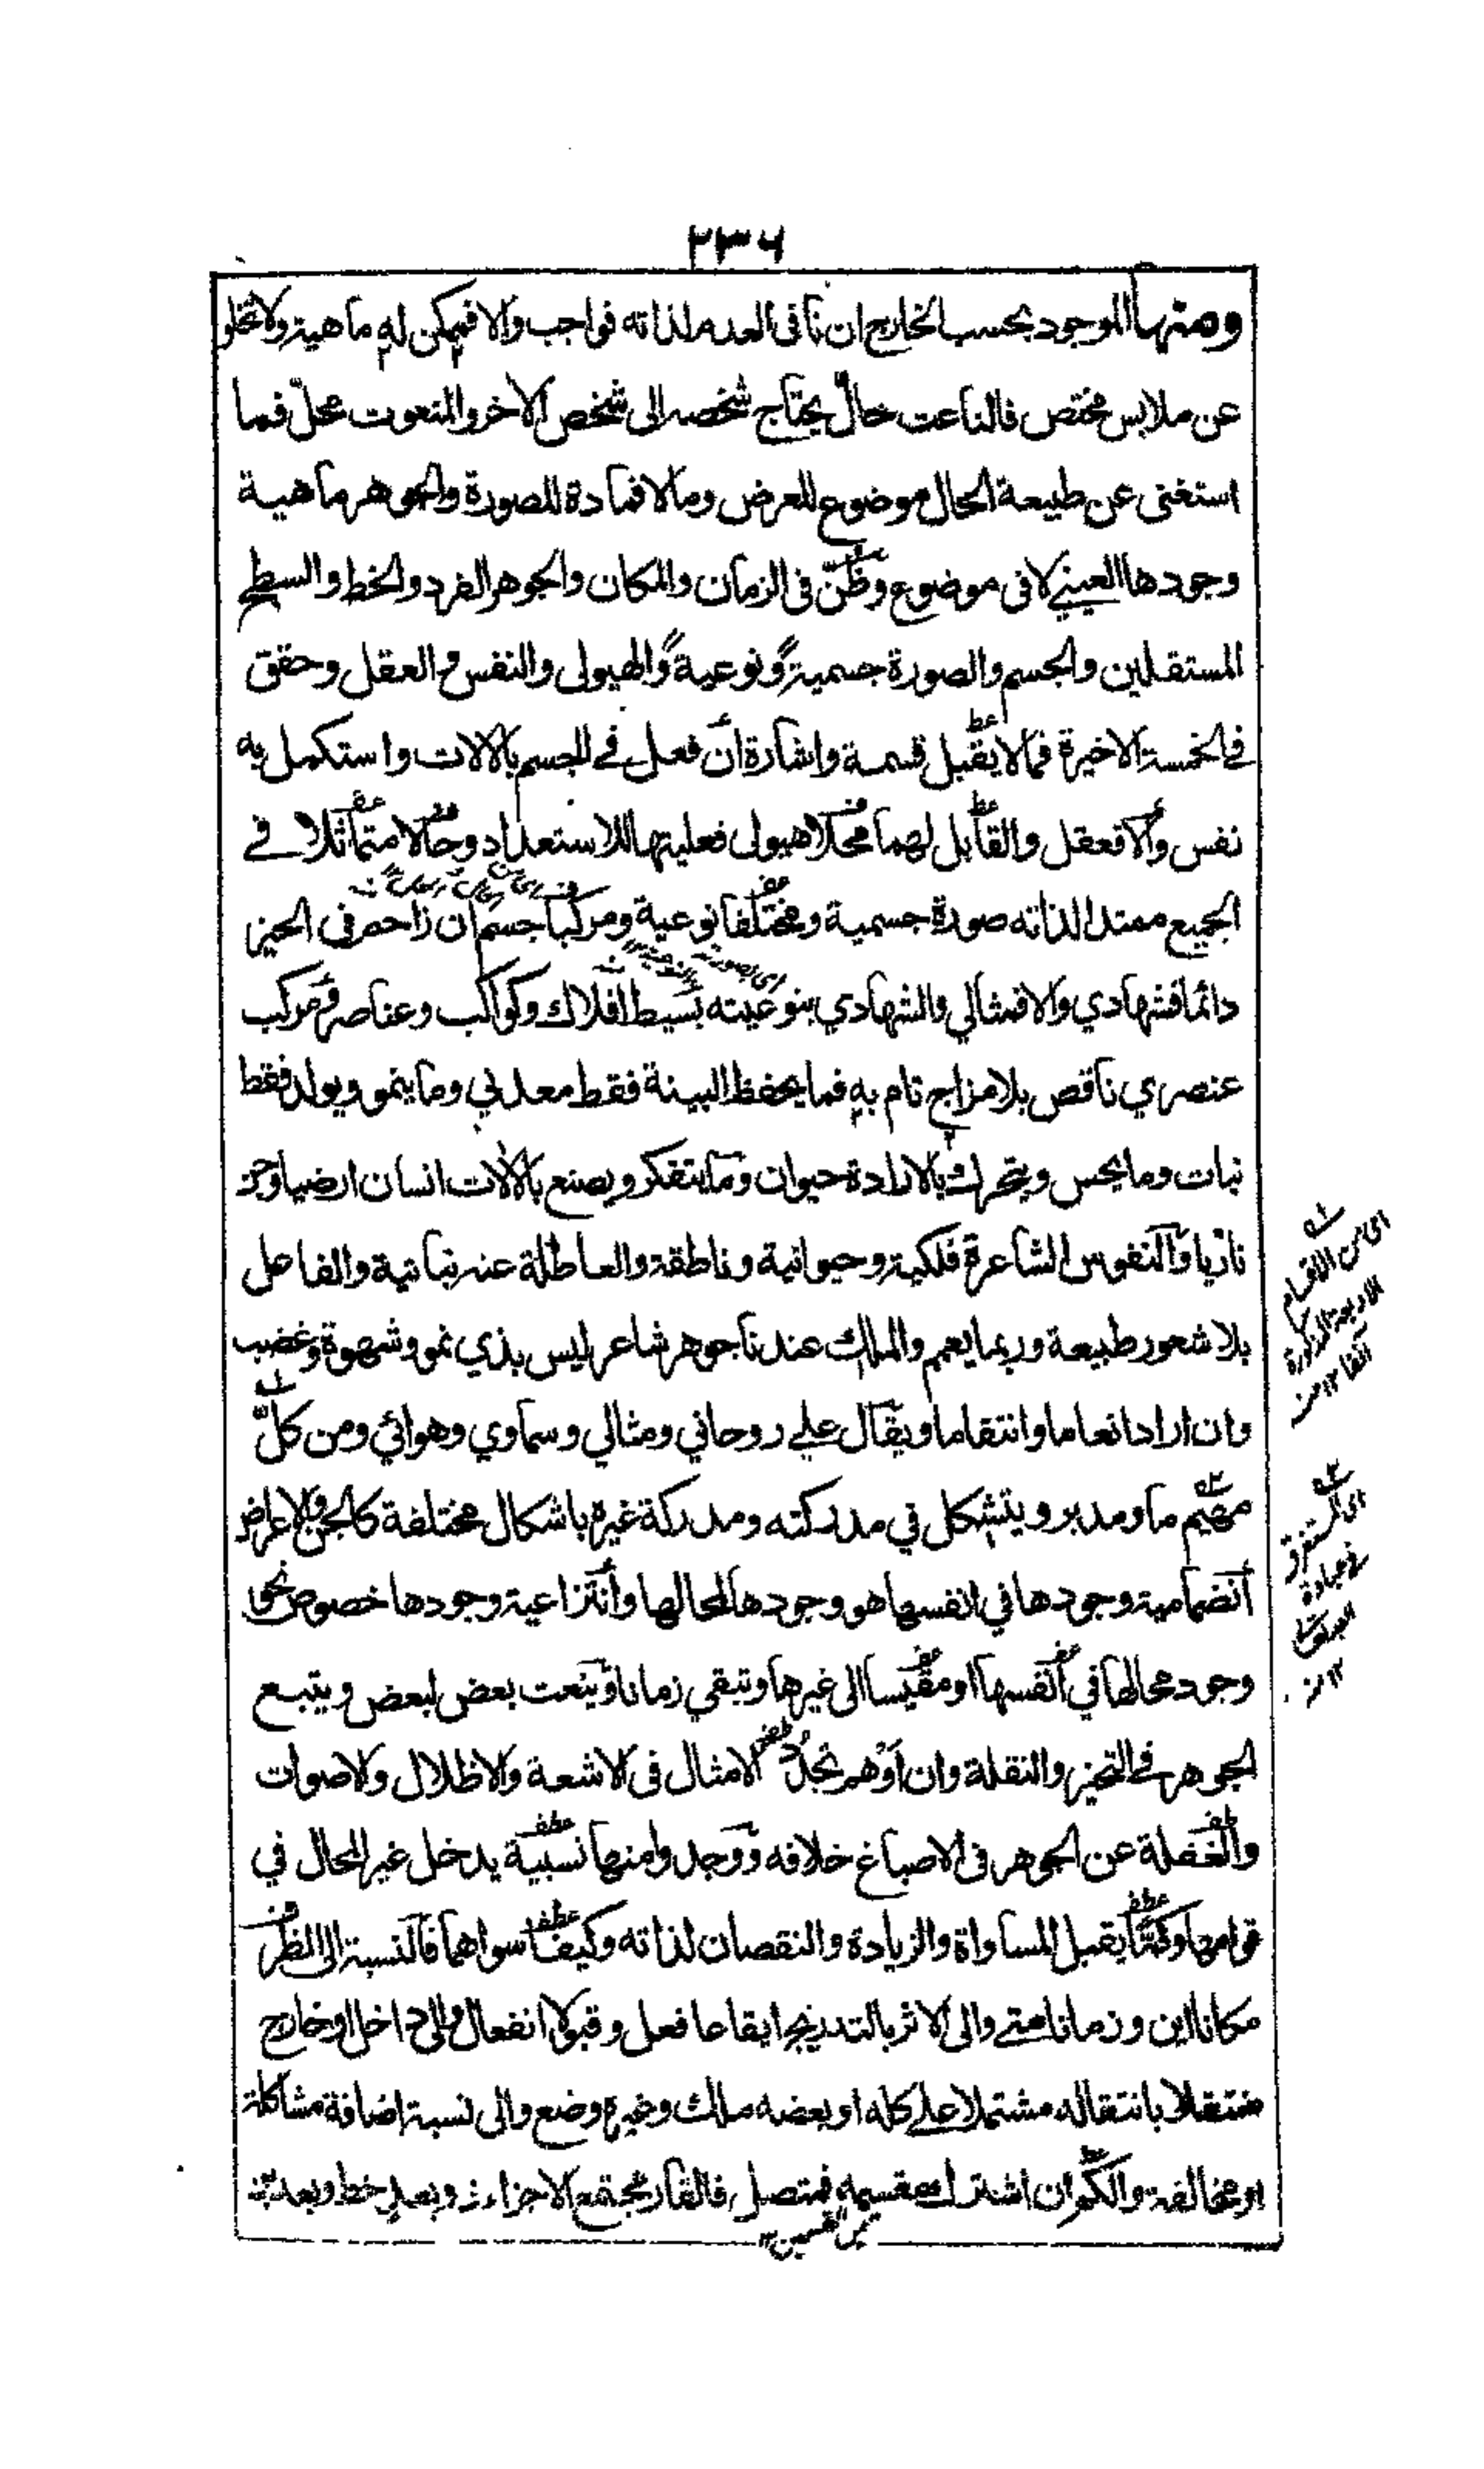 ٢٣٦
ومنها الموجود بحسب الخارج ان نافى العدم لذاته فواجب والا فممكن له ماهية ولا تخلو
عن ملابس مختص فالناعت حال يحتاج شخصه الى شخص الاخر والمنعوت محل فما
استغنى عن طبيعة الحال موضوع للعرض وما لا فمادة للصورة والجوهر ماهية
وجودها العيني لا فى موضوع وظن فى الزمان والمكان والجوهر الفرد والخط والسطح
المستقلين والجسم والصورة جسمية ونوعية والهيولى والنفس والعقل وحقق
في الخمسة الاخيرة فما لا يقبل قسمة واشارة ان فعل في الجسم بالالات واستكمل به
نفس والا فعقل والقابل لهما محلا هيولى فعليتها للاستعداد وحالا متماثلا في
الجميع ممتدا لذاته صورة جسمية ومختلفا نوعية ومركبا جسم ان زاحم فى الحيز
دائما فشهادي والا فمثالي والشهادي بنوعيته بسيط افلاك وكواكب وعناصر ومركب
عنصري ناقص بلا مزاج تام به فما يحفظ البينة فقط معدني وما ينمو ويولد فقط
نبات وما يحس ويتحرك بالارادة حيوان وما يتفكر ويصنع بالالات انسان ارضيا وجن
ناريا والنفوس الشاعرة فلكية وحيوانية وناطقة والعاطلة عنه نباتية والفاعل
بلا شعور طبيعة وربما يعم والملك عندنا جوهر شاعر ليس بذي نمو وشهوة وغضب
وان اراد انعاما وانتقاما ويقال على روحاني ومثالي وسماوي وهوائي ومن كل
مهيم ما ومدبر ويتشكل في مدركته ومدركة غيره باشكال مختلفة كالجن والاعراض
انضمامية وجودها في انفسها هو وجودها لمحالها وانتزاعية وجودها خصوص نحو
وجود محالها في انفسها او مقيسا الى غيرها وتبقى زمانا وينعت بعض لبعض ويتبع
الجوهر في التحيز والنقلة وان اوهم تجدد الامثال فى الاشعة والاظلال والاصوات
والغفلة عن الجوهر فى الاصباغ خلافه ووجدوا منها نسبية يدخل غير المحال في
قوامها وكما يقبل المساواة والزيادة والنقصان لذاته وكيفا سواهما فالنسبة الى الظرف
مكانا اين وزمانا متى والى الاثر بالتدريج ايقاعا فعل وقبولا انفعال والى داخل او خارج
منتقلا بانتقاله مشتملا على كله او بعضه ملك وغيره وضع والى نسبة اضافة مشاكلة
او مخالفة والكم ان اشترك قسيمه فمتصل فالقار مجتمع الاجزاء ذو بعد خط وبعدين
اى من الاقسام
الاربعة المذكورة
آنفا ١٢ منه